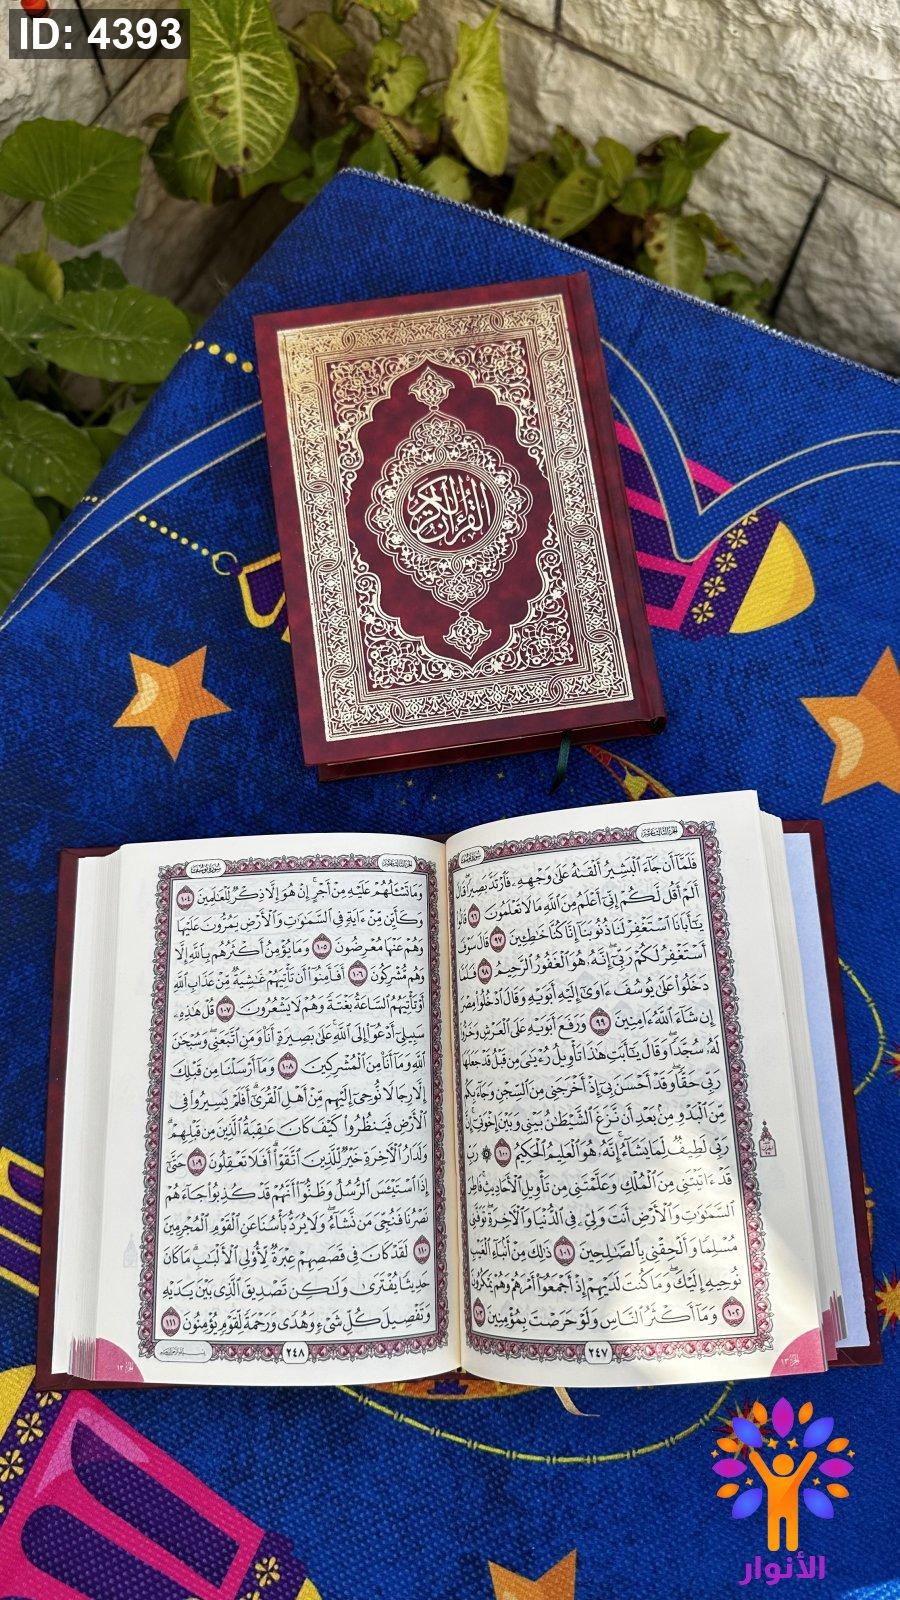 ID: 4393
القرءان الكريم
الجزء الثالث عشر
سورة يوسف
فَلَمَّا أَن جَاءَ الْبَشِيرُ أَلْقَىٰهُ عَلَىٰ وَجْهِهِ فَارْتَدَّ بَصِيرًا قَالَ
أَلَمْ أَقُل لَّكُمْ إِنِّي أَعْلَمُ مِنَ اللَّهِ مَا لَا تَعْلَمُونَ ٩٦ قَالُوا
يَٰٓأَبَانَا اسْتَغْفِرْ لَنَا ذُنُوبَنَا إِنَّا كُنَّا خَٰطِـِٔينَ ٩٧ قَالَ سَوْفَ
أَسْتَغْفِرُ لَكُمْ رَبِّي إِنَّهُ هُوَ الْغَفُورُ الرَّحِيمُ ٩٨ فَلَمَّا
دَخَلُوا عَلَىٰ يُوسُفَ ءَاوَىٰ إِلَيْهِ أَبَوَيْهِ وَقَالَ ادْخُلُوا مِصْرَ
إِن شَاءَ اللَّهُ ءَامِنِينَ ٩٩ وَرَفَعَ أَبَوَيْهِ عَلَى الْعَرْشِ وَخَرُّوا
لَهُ سُجَّدًا وَقَالَ يَٰٓأَبَتِ هَٰذَا تَأْوِيلُ رُءْيَٰيَ مِن قَبْلُ قَدْ جَعَلَهَا
رَبِّي حَقًّا وَقَدْ أَحْسَنَ بِي إِذْ أَخْرَجَنِي مِنَ السِّجْنِ وَجَاءَ بِكُم
مِّنَ الْبَدْوِ مِن بَعْدِ أَن نَّزَغَ الشَّيْطَٰنُ بَيْنِي وَبَيْنَ إِخْوَتِي إِنَّ
رَبِّي لَطِيفٌ لِّمَا يَشَاءُ إِنَّهُ هُوَ الْعَلِيمُ الْحَكِيمُ ١٠٠ ۞ رَبِّ
قَدْ ءَاتَيْتَنِي مِنَ الْمُلْكِ وَعَلَّمْتَنِي مِن تَأْوِيلِ الْأَحَادِيثِ فَاطِرَ
السَّمَٰوَٰتِ وَالْأَرْضِ أَنتَ وَلِيِّي فِي الدُّنْيَا وَالْءَاخِرَةِ تَوَفَّنِي
مُسْلِمًا وَأَلْحِقْنِي بِالصَّٰلِحِينَ ١٠١ ذَٰلِكَ مِنْ أَنبَاءِ الْغَيْبِ
نُوحِيهِ إِلَيْكَ وَمَا كُنتَ لَدَيْهِمْ إِذْ أَجْمَعُوا أَمْرَهُمْ وَهُمْ يَمْكُرُونَ
١٠٢ وَمَا أَكْثَرُ النَّاسِ وَلَوْ حَرَصْتَ بِمُؤْمِنِينَ ١٠٣
٢٤٧
الجزء ١٣
الجزء الثالث عشر
سورة يوسف
وَمَا تَسْـَٔلُهُمْ عَلَيْهِ مِنْ أَجْرٍ إِنْ هُوَ إِلَّا ذِكْرٌ لِّلْعَٰلَمِينَ ١٠٤
وَكَأَيِّن مِّنْ ءَايَةٍ فِي السَّمَٰوَٰتِ وَالْأَرْضِ يَمُرُّونَ عَلَيْهَا
وَهُمْ عَنْهَا مُعْرِضُونَ ١٠٥ وَمَا يُؤْمِنُ أَكْثَرُهُم بِاللَّهِ إِلَّا
وَهُم مُّشْرِكُونَ ١٠٦ أَفَأَمِنُوا أَن تَأْتِيَهُمْ غَٰشِيَةٌ مِّنْ عَذَابِ اللَّهِ
أَوْ تَأْتِيَهُمُ السَّاعَةُ بَغْتَةً وَهُمْ لَا يَشْعُرُونَ ١٠٧ قُلْ هَٰذِهِ
سَبِيلِي أَدْعُوا إِلَى اللَّهِ عَلَىٰ بَصِيرَةٍ أَنَا وَمَنِ اتَّبَعَنِي وَسُبْحَٰنَ
اللَّهِ وَمَا أَنَا مِنَ الْمُشْرِكِينَ ١٠٨ وَمَا أَرْسَلْنَا مِن قَبْلِكَ
إِلَّا رِجَالًا نُّوحِي إِلَيْهِم مِّنْ أَهْلِ الْقُرَىٰ أَفَلَمْ يَسِيرُوا فِي
الْأَرْضِ فَيَنظُرُوا كَيْفَ كَانَ عَٰقِبَةُ الَّذِينَ مِن قَبْلِهِمْ
وَلَدَارُ الْءَاخِرَةِ خَيْرٌ لِّلَّذِينَ اتَّقَوْا أَفَلَا تَعْقِلُونَ ١٠٩ حَتَّىٰ
إِذَا اسْتَيْـَٔسَ الرُّسُلُ وَظَنُّوا أَنَّهُمْ قَدْ كُذِبُوا جَاءَهُمْ
نَصْرُنَا فَنُجِّيَ مَن نَّشَاءُ وَلَا يُرَدُّ بَأْسُنَا عَنِ الْقَوْمِ الْمُجْرِمِينَ
١١٠ لَقَدْ كَانَ فِي قَصَصِهِمْ عِبْرَةٌ لِّأُولِي الْأَلْبَٰبِ مَا كَانَ
حَدِيثًا يُفْتَرَىٰ وَلَٰكِن تَصْدِيقَ الَّذِي بَيْنَ يَدَيْهِ
وَتَفْصِيلَ كُلِّ شَيْءٍ وَهُدًى وَرَحْمَةً لِّقَوْمٍ يُؤْمِنُونَ ١١١
٢٤٨
الجزء ١٣
الأنوار